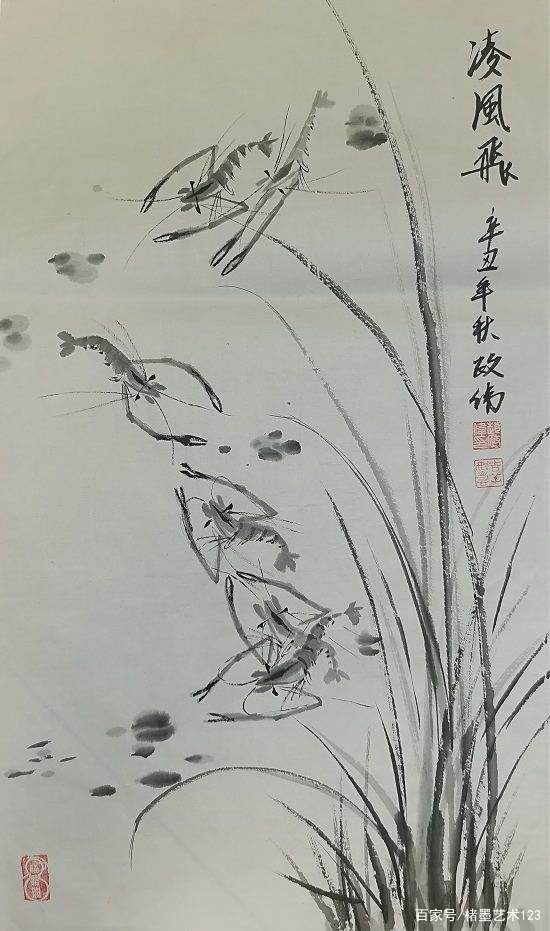 凌風飛
辛丑年秋政偉
百家号/楮墨艺术123